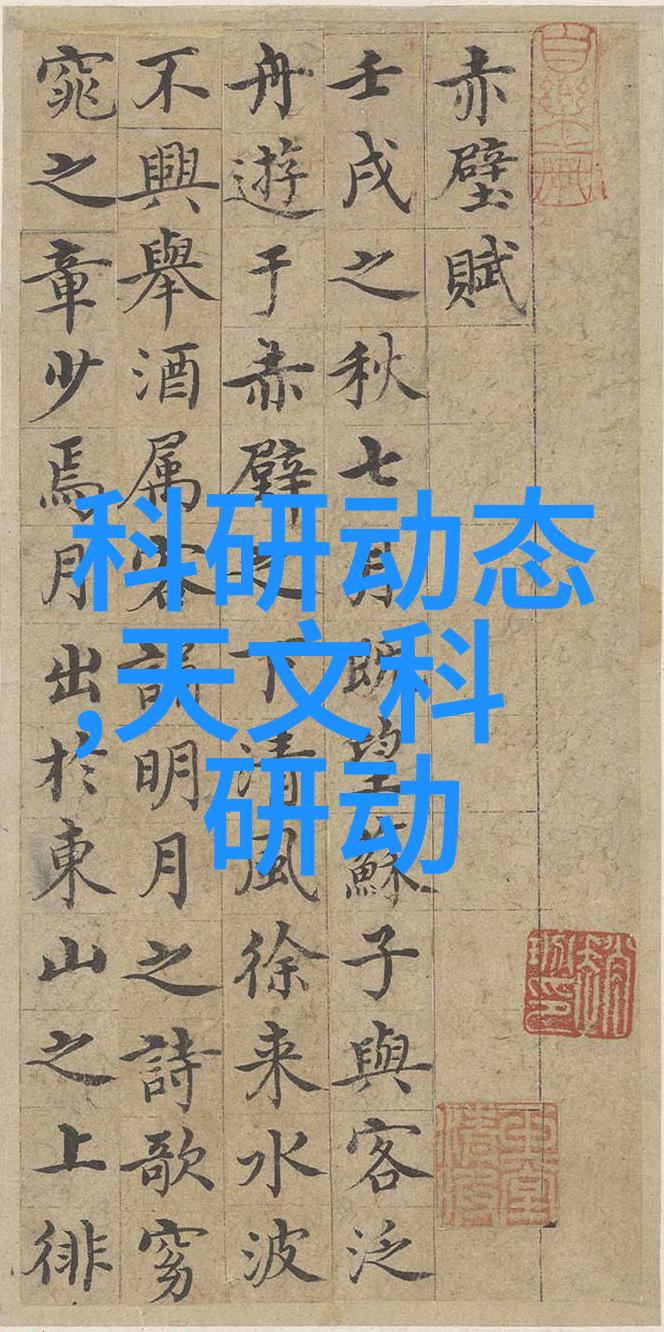 赤壁賦
壬戌之秋七月既望蘇子與客泛
舟遊于赤壁之下清風徐来水波
不興舉酒属客誦明月之詩歌窈
窕之章少焉月出於東山之上徘
科研动态
,天文科
研动